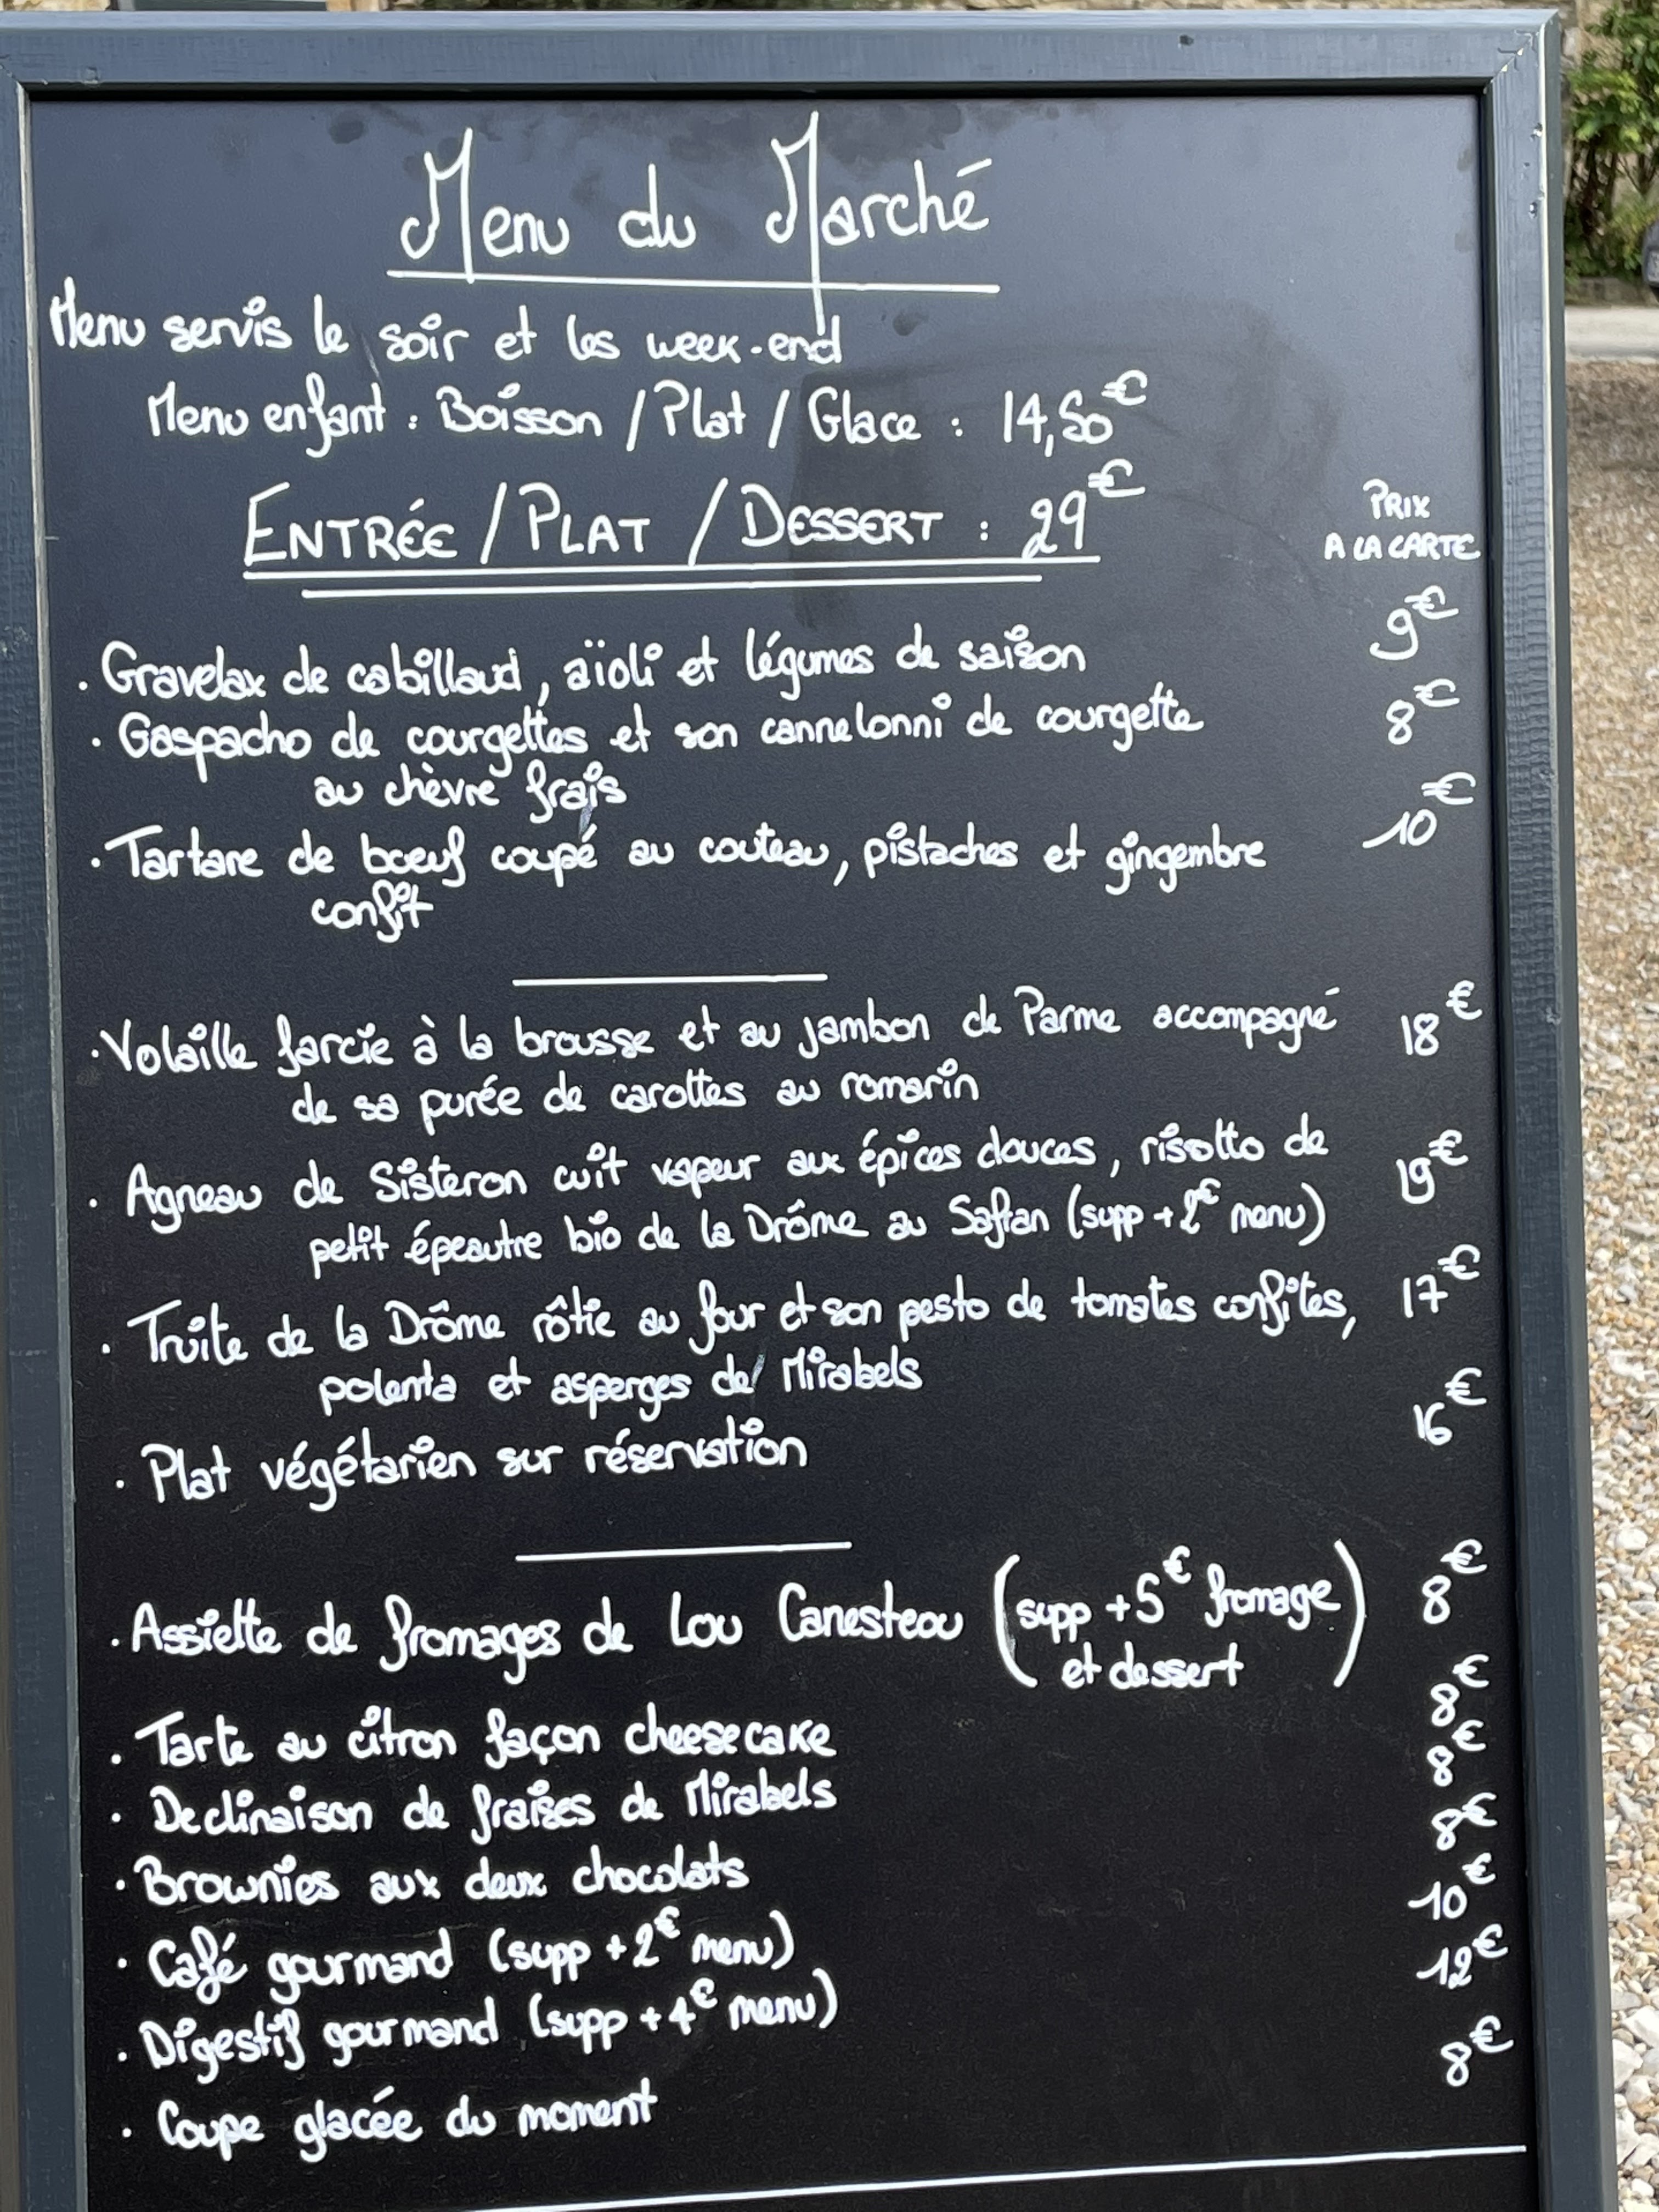 Menu du Marché
Menu servis le soir et les week-end
Menu enfant : Boisson / Plat / Glace : 14,50€
ENTRÉE / PLAT / DESSERT : 29€
PRIX
A LA CARTE
. Gravelax de cabillaud, aïoli et légumes de saison 9€
. Gaspacho de courgettes et son cannelonni de courgette 8€
au chèvre frais
. Tartare de bœuf coupé au couteau, pistaches et gingembre 10€
confit
. Volaille farcie à la brousse et au jambon de Parme accompagné 18€
de sa purée de carottes au romarin
. Agneau de Sisteron cuit vapeur aux épices douces, risotto de 19€
petit épeautre bio de la Drôme au Safran (supp + 2€ menu)
. Truite de la Drôme rôtie au four et son pesto de tomates confites, 17€
polenta et asperges de Mirabels
. Plat végétarien sur réservation 16€
. Assiette de fromages de Lou Canesteou (supp + 5€ fromage 8€
et dessert)
. Tarte au citron façon cheesecake 8€
. Declinaison de fraises de Mirabels 8€
. Brownies aux deux chocolats 8€
. Café gourmand (supp + 2€ menu) 10€
. Digestif gourmand (supp + 4€ menu) 12€
. Coupe glacée du moment 8€